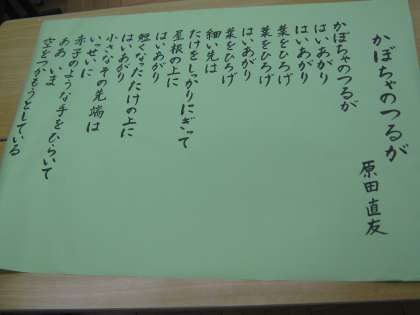 かぼちゃのつるが
原田 直友
かぼちゃのつるが
はいあがり
はいあがり
葉をひろげ
葉をひろげ
はいあがり
葉をひろげ
細い先は
たけをしっかりにぎって
屋根の上に
はいあがり
短くなったたけの上に
はいあがり
小さなその先端は
いっせいに
赤子のような手をひらいて
ああ いま
空をつかもうとしている